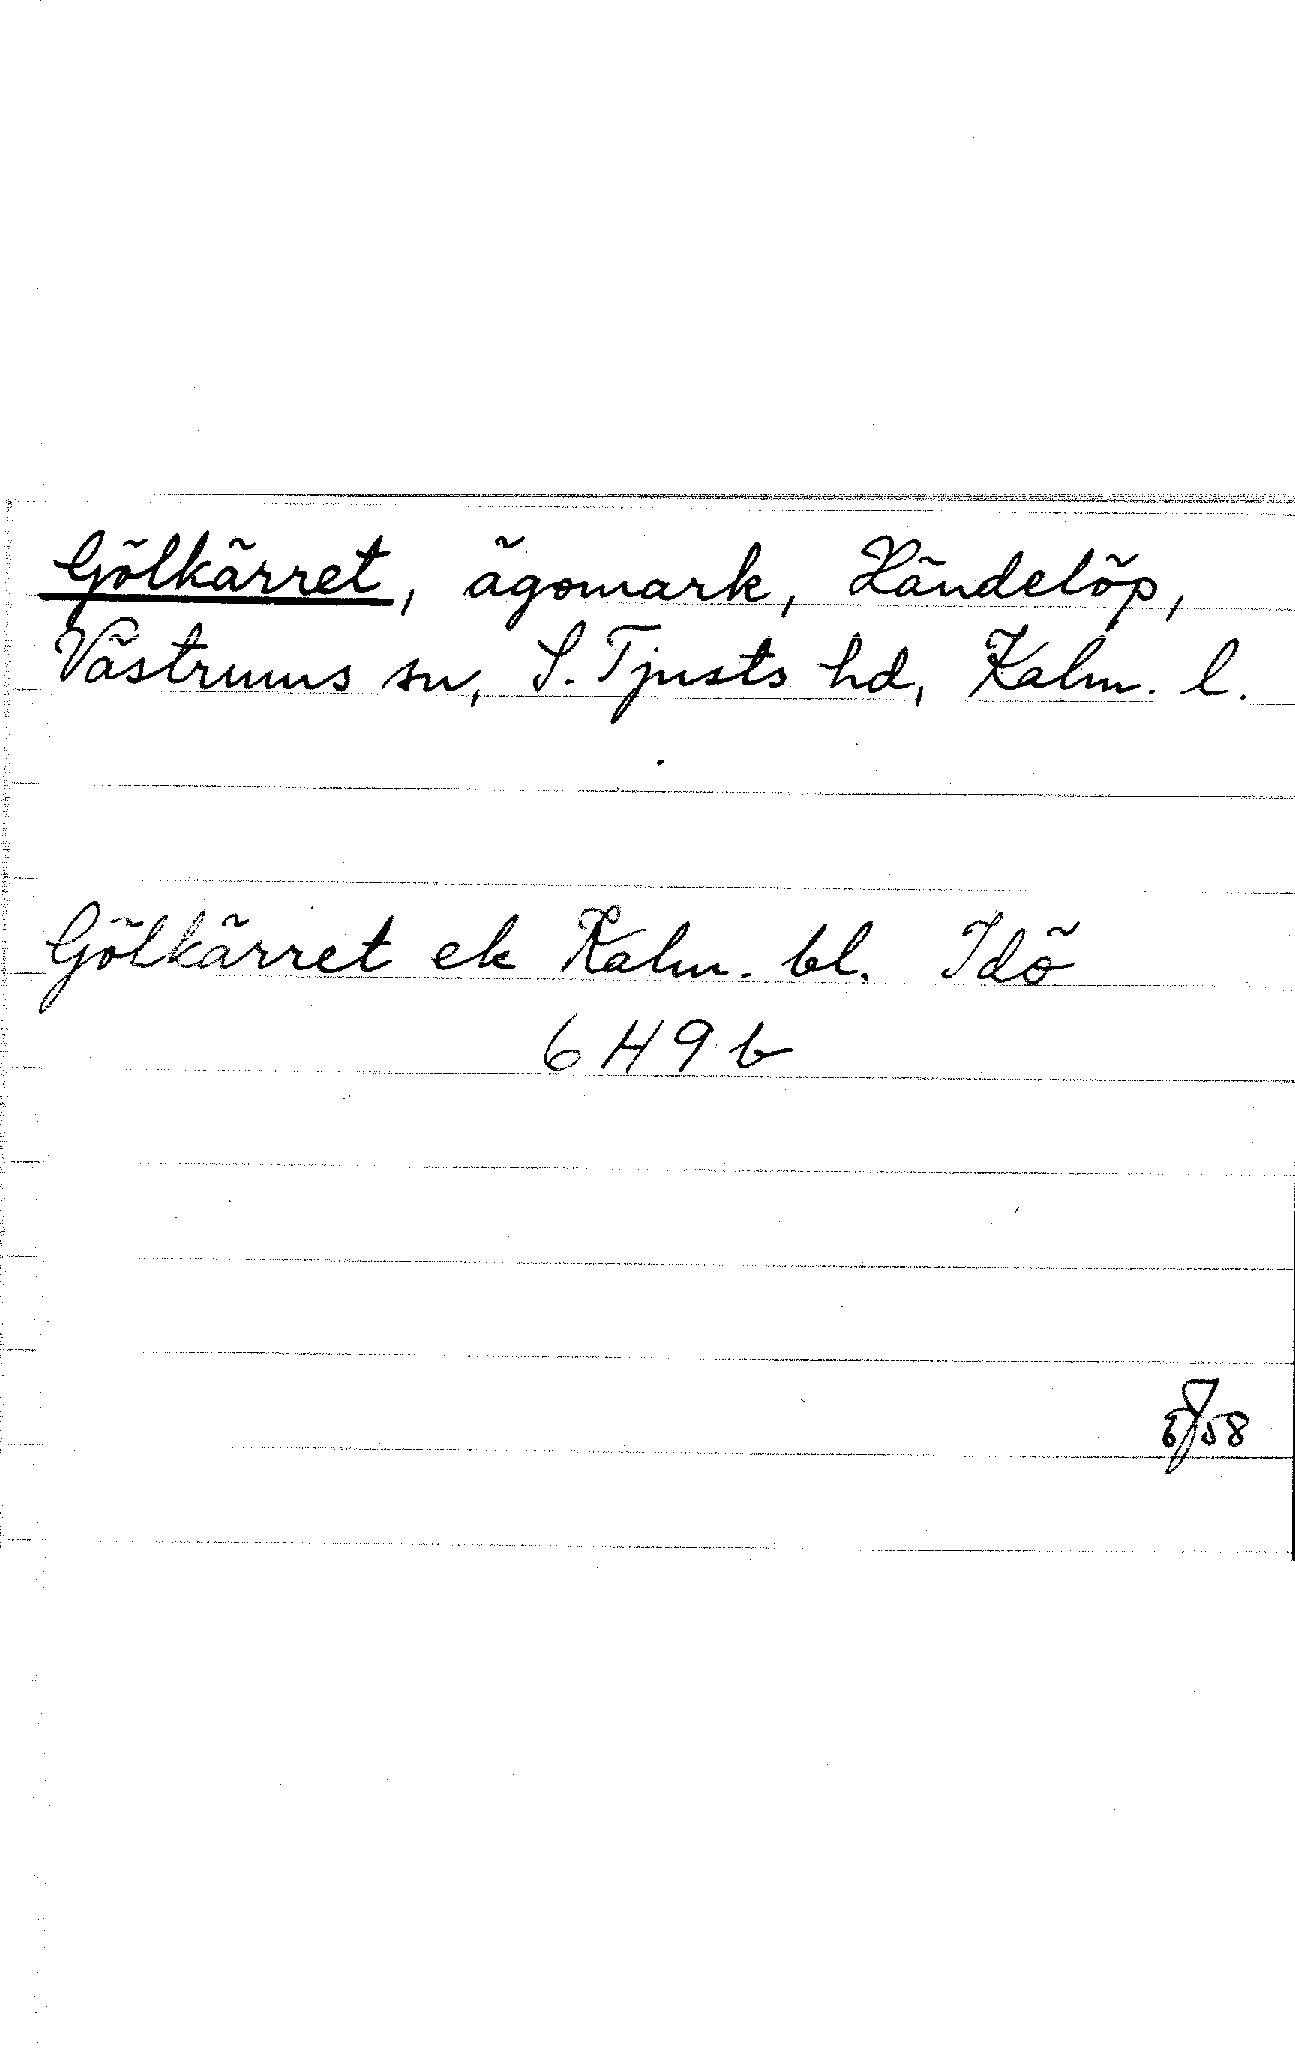 Gölkärret, ägomark, Händelöp,
Västrums sn, S. Tjusts hd, Kalm. l.
Gölkärret ek Kalm. bl. Idö
6 H 9 b
58